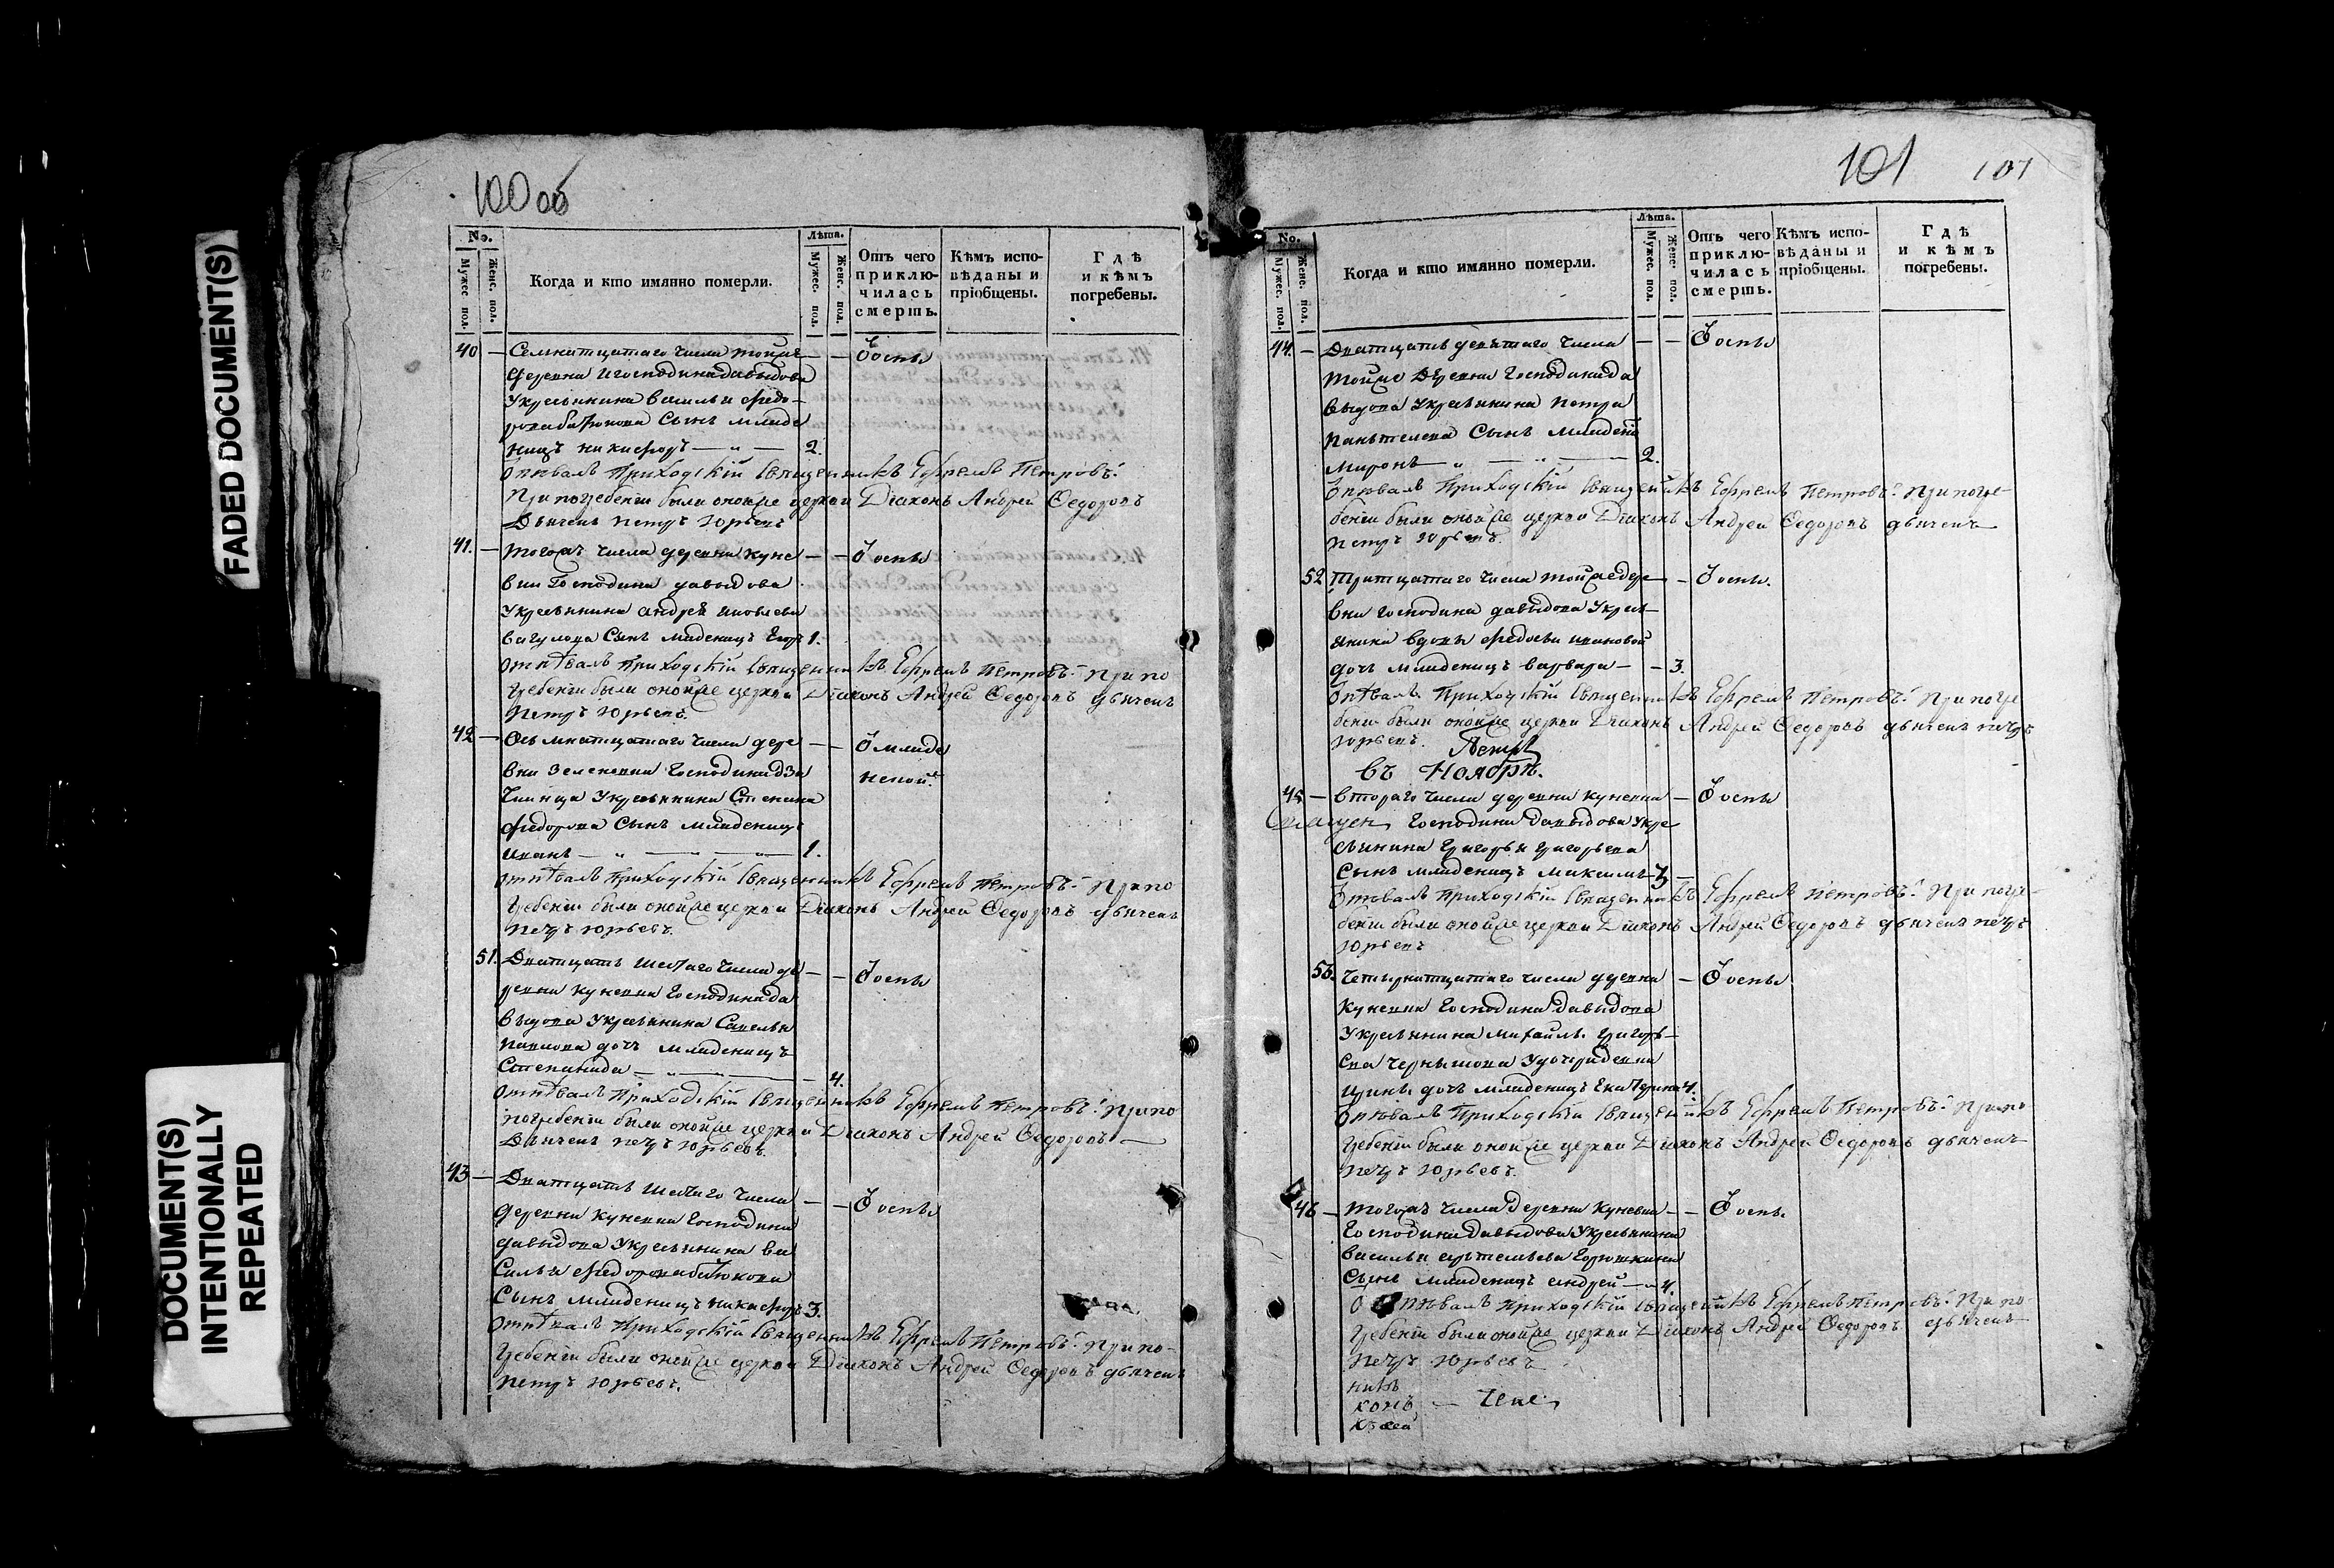 FADED DOCUMENT(S)
DOCUMENT(S)
INTENTIONALLY
REPEATED
100 об
No.
Мужес. пол.
Женс. пол.
Когда и кто имянно померли.
Лѣта.
Мужес. пол.
Женс. пол.
Отъ чего приклю-
чилась смерть.
Кѣмъ испо-
вѣданы и
пріобщены.
Гдѣ
и кѣмъ
погребены.
40 — Семнатцатаго числа тойже — — ѿ оспы
деревни и господина давыдова
укрестьянина василья федо-
рова бабюкова сынъ младе
ницъ никифоръ — „ — 2.
Отпѣвалъ Приходскій Священникъ Ефремъ Петровъ. При погребеніи были оной же церкви Діаконъ Андрей Федоровъ
Дьячекъ петръ Юрьевъ
41. — тогожъ числа деревни куне — — ѿ оспы
вки Господина давыдова
укрестьянина андрея яковлева
сынъ младеницъ Егоръ 1.
Отпѣвалъ Приходскій Священникъ Ефремъ Петровъ. При по
гребеніи были оной же церкви Діаконъ Андрей Федоровъ дьячекъ
петръ Юрьевъ.
42 — Осьмнатцатаго числа дере — — ѿ младе
вни Зеленевки Господина
нской
укрестьянина Степана
федорова сынъ младеницъ
иванъ — „ — „ — 1.
Отпѣвалъ Приходскій Священникъ Ефремъ Петровъ. При по
гребеніи были оной же церкви Діаконъ Андрей Федоровъ дьячекъ
петръ Юрьевъ.
51. Дватцать шестаго числа де — — ѿ оспы
ревни куневки Господина да
выдова укрестьянина Савелья
павлова дочь младеницъ
Степанида — „ — 4.
Отпѣвалъ Приходскій Священникъ Ефремъ Петровъ. При по
погребеніи были оной же церкви Діаконъ Андрей Федоровъ —
Дьячекъ петръ Юрьевъ.
43 — Дватцать шестаго числа — — ѿ оспы
деревни куневки Господина
давыдова укрестьянина ва
силья федорова бабюкова
сынъ младеницъ никифоръ 3.
Отпѣвалъ Приходскій Священникъ Ефремъ Петровъ. При по-
гребеніи были оной же церкви Діаконъ Андрей Федоровъ дьячекъ
петръ Юрьевъ.
101 101
No.
Мужес. пол.
Женс. пол.
Когда и кто имянно померли.
Лѣта.
Мужес. пол.
Женс. пол.
Отъ чего
приклю-
чилась
смерть.
Кѣмъ испо-
вѣданы и
пріобщены.
Гдѣ
и кѣмъ
погребены.
44. — Дватцать девятаго числа — — ѿ оспы
тойже деревни Господина да
выдова укрестьянина петра
пантелева сынъ младени
миронъ — „ — „ — 2.
Отпѣвалъ Приходскій Священникъ Ефремъ Петровъ. При погре-
беніи были оной же церкви Діаконъ Андрей Федоровъ дьячекъ
петръ Юрьевъ.
52 Тритцатаго числа тойже дере — — ѿ оспы.
вни господина давыдова укрест-
янки вдовы федосьи ивановой
дочь младеницъ варвара — — 3.
Отпѣвалъ Приходскій Священникъ Ефремъ Петровъ. При погре
беніи были оной же церкви Діаконъ Андрей Федоровъ дьячекъ петръ
Юрьевъ.
въ Ноябрѣ.
45 — втораго числа деревни куневки — ѿ оспы
Господина Давыдова укре
стьянина григорья григорьева
сынъ младеницъ максимъ — 3 —
Отпѣвалъ Приходскій Священникъ Ефремъ Петровъ. При погре-
беніи были оной же церкви Діаконъ Андрей Федоровъ дьячекъ петръ
Юрьевъ
53. Четырнатцатаго числа деревни — ѿ оспы
куневки Господина давыдова
укрестьянина михайлы григорь-
ева чернышова
дочь младеницъ Екатерина 4.
Отпѣвалъ Приходскій Священникъ Ефремъ Петровъ. При по
гребеніи были оной же церкви Діаконъ Андрей Федоровъ дьячекъ
петръ Юрьевъ.
46 — тогожъ числа деревни куневки — — ѿ оспы.
Господина давыдова укрестьянина
василья горюшкина
сынъ младеницъ андрей — 4.
Отпѣвалъ Приходскій Священникъ Ефремъ Петровъ. При по-
гребеніи были оной же церкви Діаконъ Андрей Федоровъ дьячекъ
петръ Юрьевъ